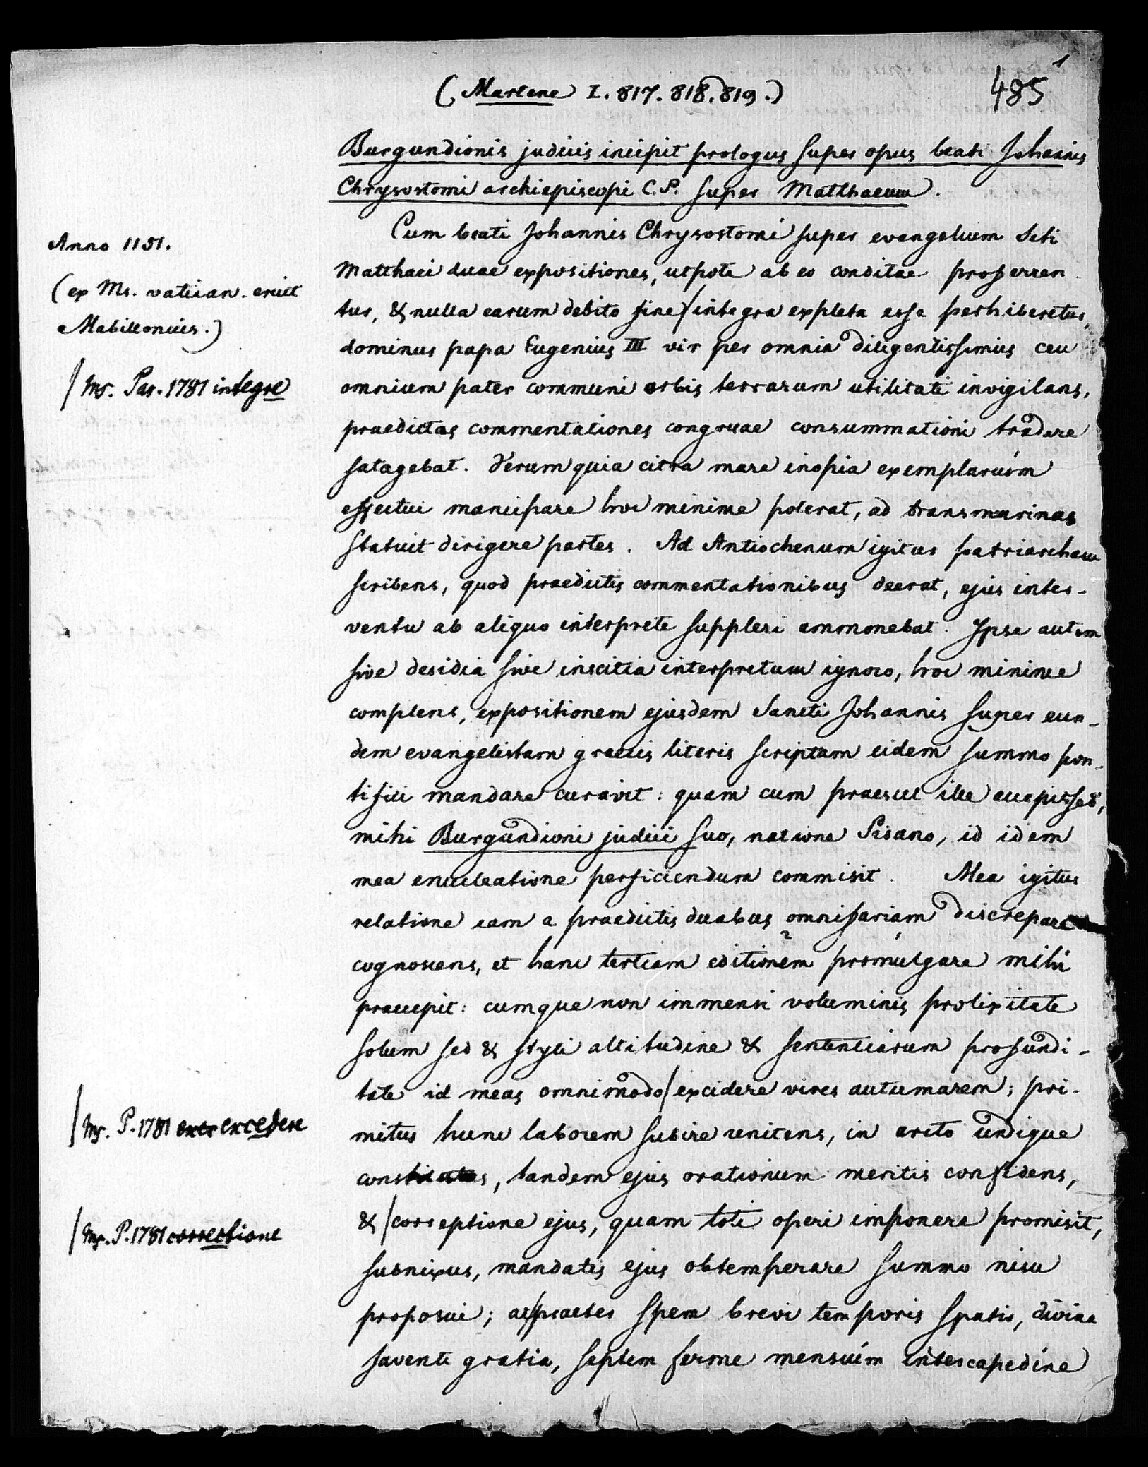 1
(Martene I. 817. 818. 819.)
485
Burgundionis judicis incipit prologus super opus beati Johannis
Chrysostomi archiepiscopi C.P. super Matthaeum.
Cum beati Johannis Chrysostomi super evangelium Scti
Matthaei duae expositiones, utpote ab eo conditae proferren
tur, & nulla earum debito fine/integra expleta esse perhiberetur,
dominus papa Eugenius III vir per omnia diligentissimus ceu
omnium pater communi orbis terrarum utilitati invigilans,
praedictas commentationes congruae consummationi tradere
satagebat. Verum quia citra mare inopia exemplarium
effectui mancipare hoc minime poterat, ad transmarinas
statuit dirigere partes. Ad Antiochenum igitur patriarcham
scribens, quod praedictis commentationibus deerat, ejus inter-
ventu ab aliquo interprete suppleri ammonebat. Ipse autem
sive desidia sive inscitia interpretum ignoro, hoc minime
complens, expositionem ejusdem Sancti Johannis super eun-
dem evangelistam graecis literis scriptam eidem summo pon-
tifici mandare curavit: quam cum praesul ille accepisset,
mihi Burgundioni judici suo, natione Pisano, id idem
mea enucleatione perficiendum commisit. Mea igitur
relatione eam a praedictis duabus omnifariam discrepare
cognoscens, et hanc tertiam editionem promulgare mihi
praecepit: cumque non immensi voluminis prolixitate
solum sed & styli altitudine & sententiarum profundi-
tate id meas omnimodo/excidere vires autumarem; pri-
mitus hunc laborem subire renitens, in arcto undique
constrictus, tandem ejus orationum meritis confidens,
&/correptione ejus, quam toti operi imponere promisit,
subnixus, mandatis ejus obtemperare summo nisu
proposui; ac/praeter spem brevi temporis spatio, divina
favente gratia, septem ferme mensium intercapedine
Anno 1151.
(ex Ms. vatican. eruit
Mabillonius.)
/Ms. Par. 1781 integre
/Ms. P. 1781 excedere
/Ms. P. 1781 correctione